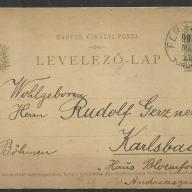 MAGYAR KIRÁLYI POSTA
LEVELEZŐ-LAP
Wohlgeboren
Herrn Rudolf Gerzner
Karlsbad
Böhmen
"Haus
Andreasgasse